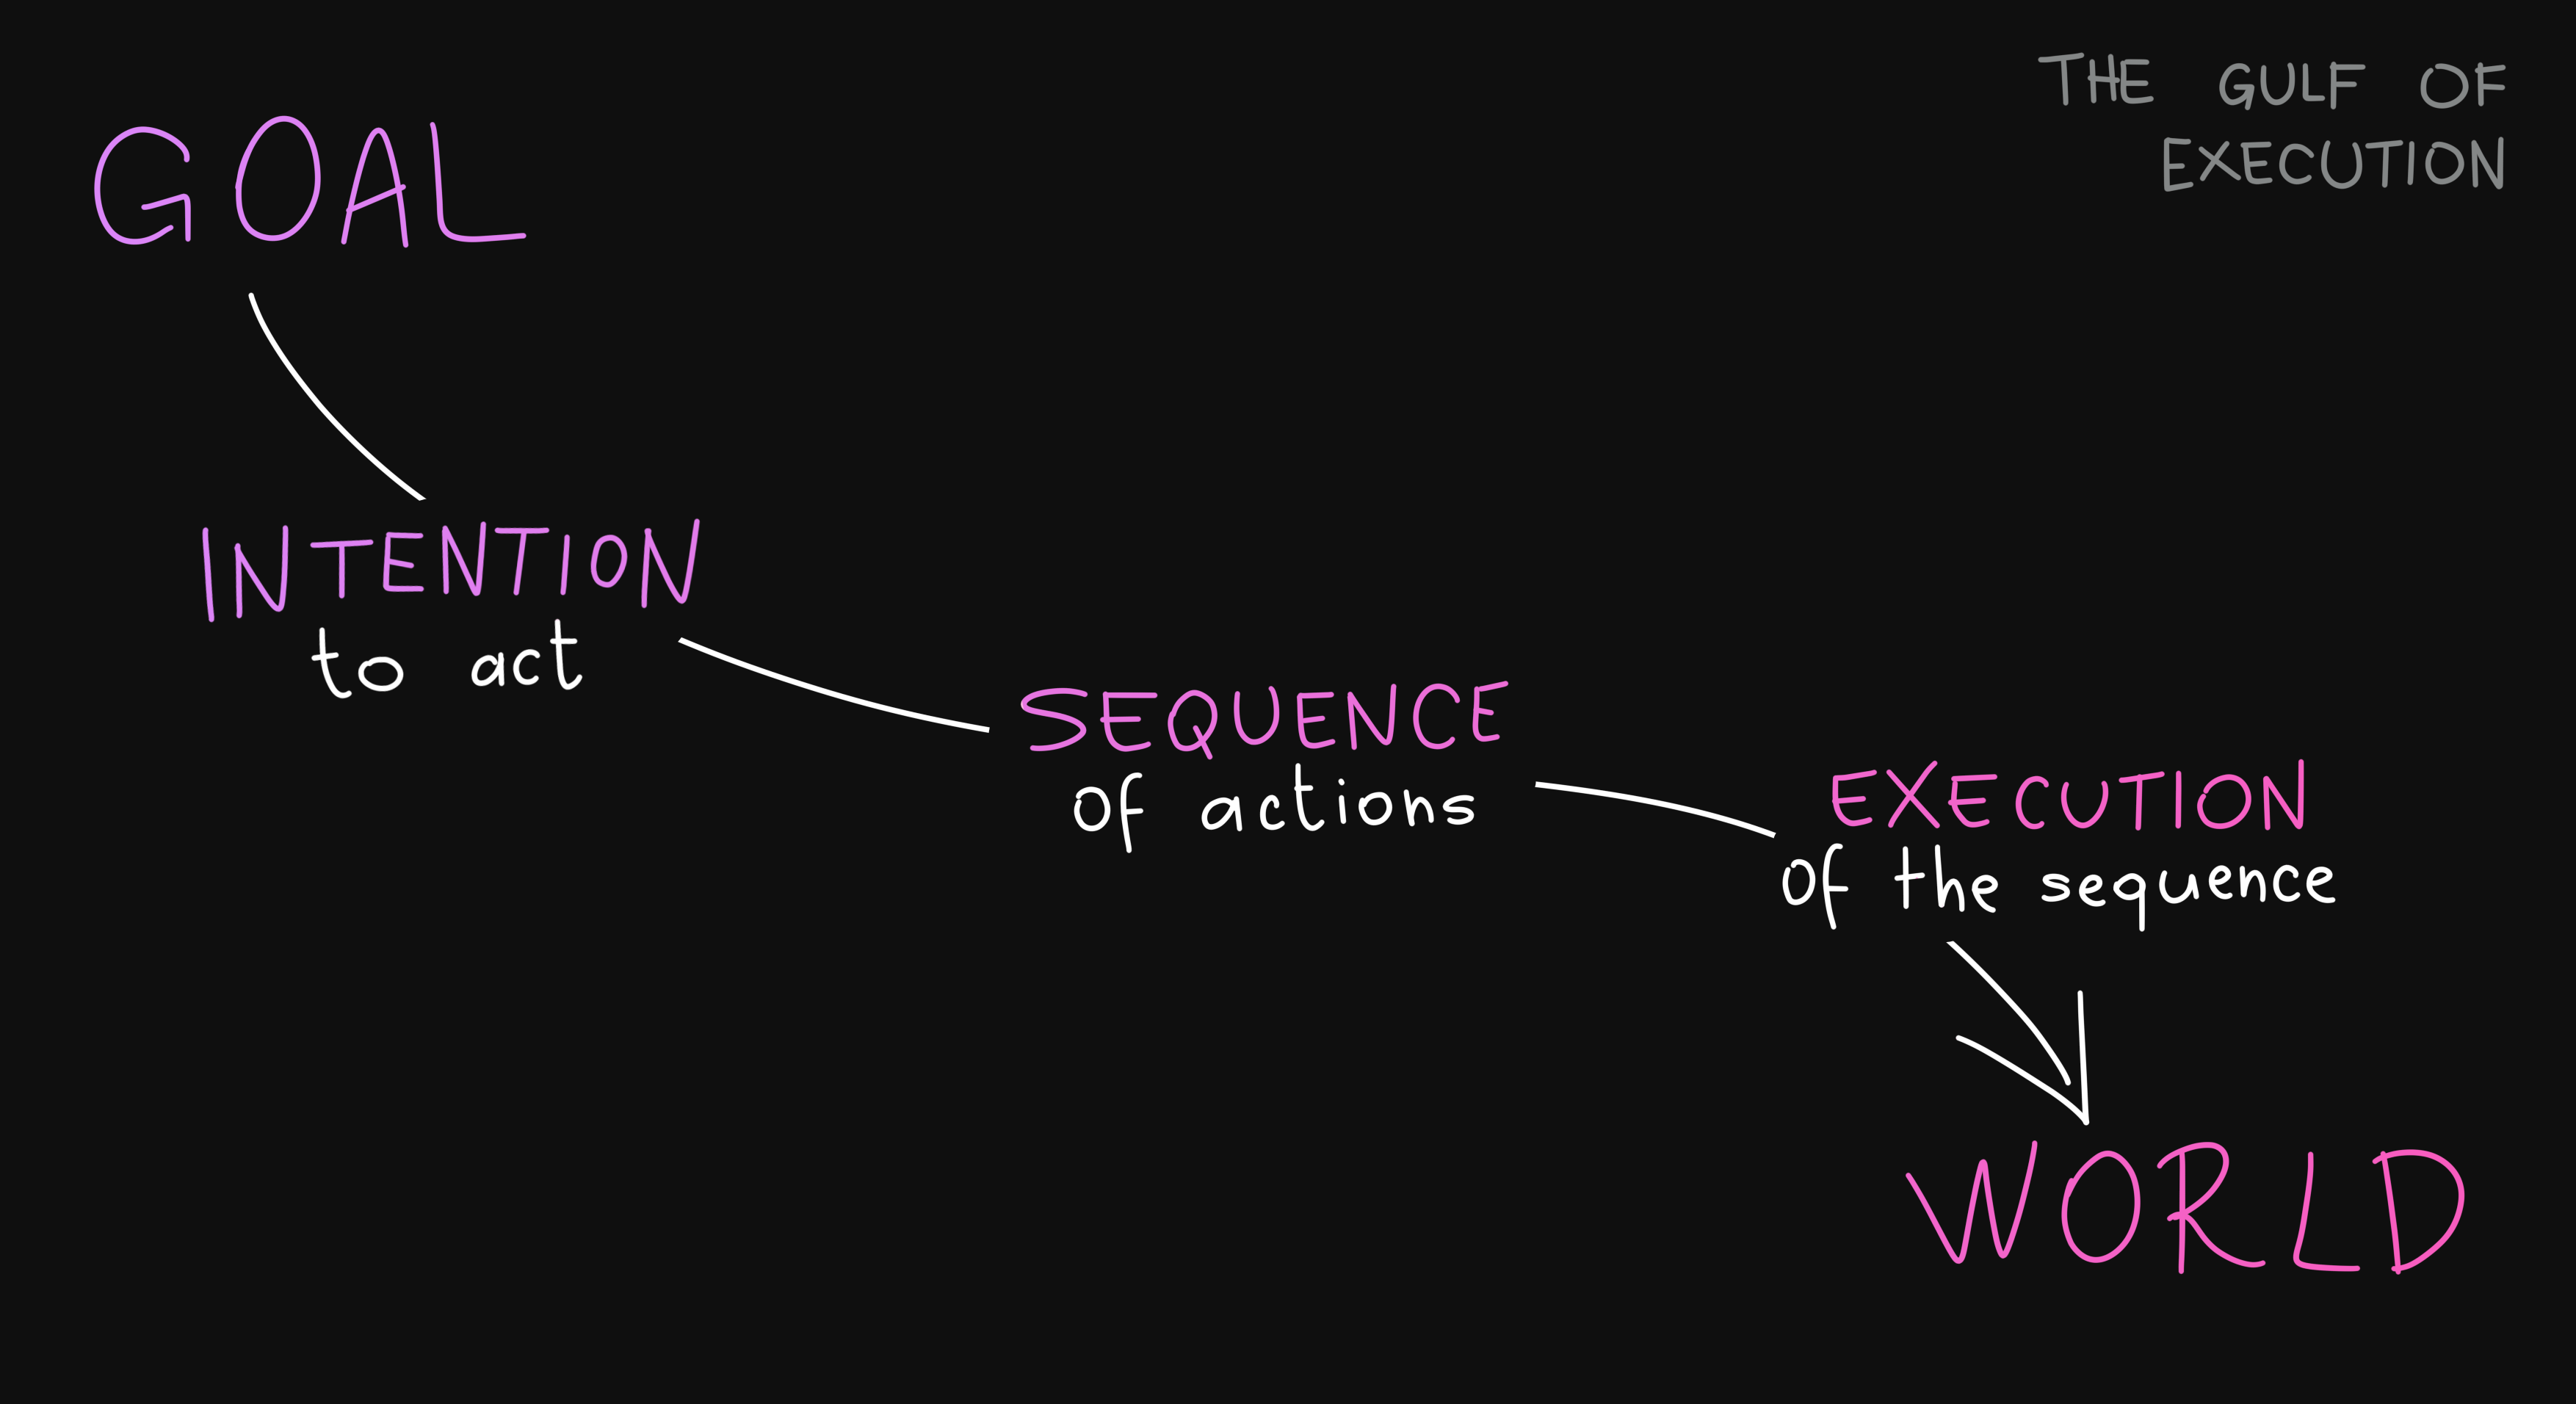 THE GULF OF
EXECUTION
GOAL
INTENTION
to act
SEQUENCE
of actions
EXECUTION
of the sequence
WORLD